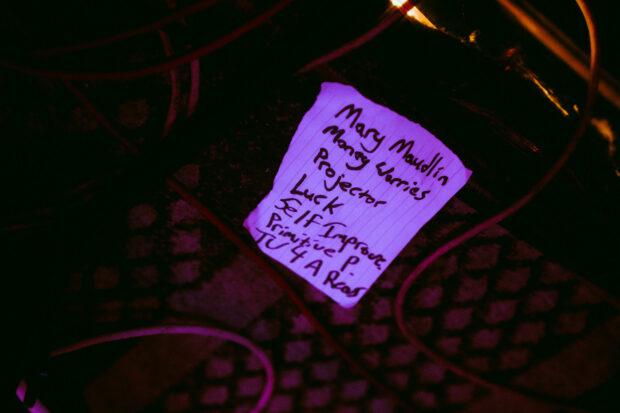 Mary Maudlin
Money Worries
Projector
Luck
Self Improve
Primitive P.
TV 4 A Read